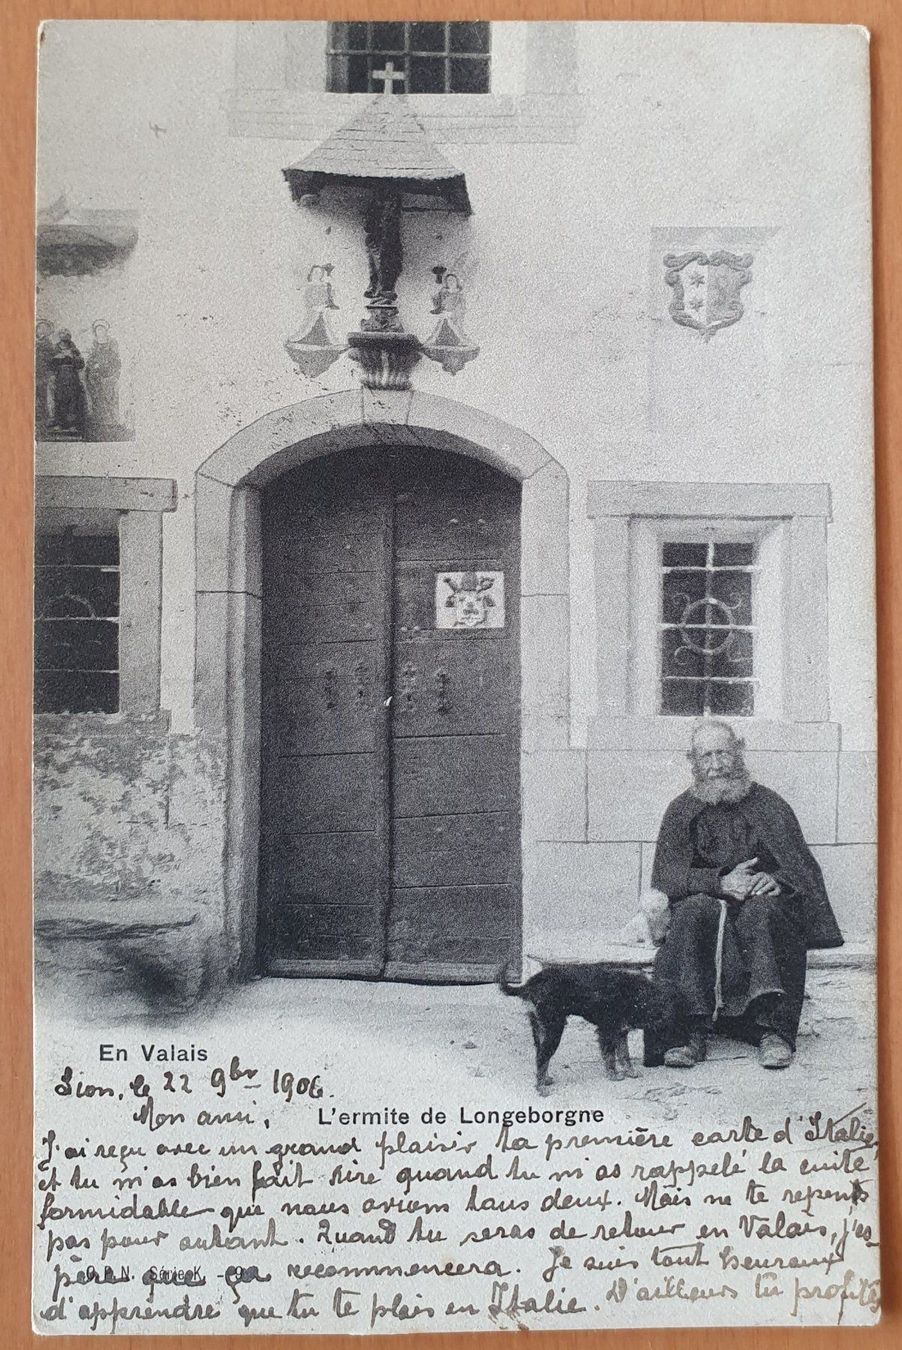 En Valais
Sion, le 22 9br 1906.
L'ermite de Longeborgne
Mon ami,
J'ai reçu avec un grand plaisir ta première carte d'Italie,
et tu m'as bien fait rire quand tu m'as rappelé la cuite
formidable que nous avions tous deux. Mais ne te repents
pas pour autant. Quand tu seras de retour en Valais, j'es-
père que ça recommencera. Je suis tout heureux
d'apprendre que tu te plais en Italie. D'ailleurs tu profites